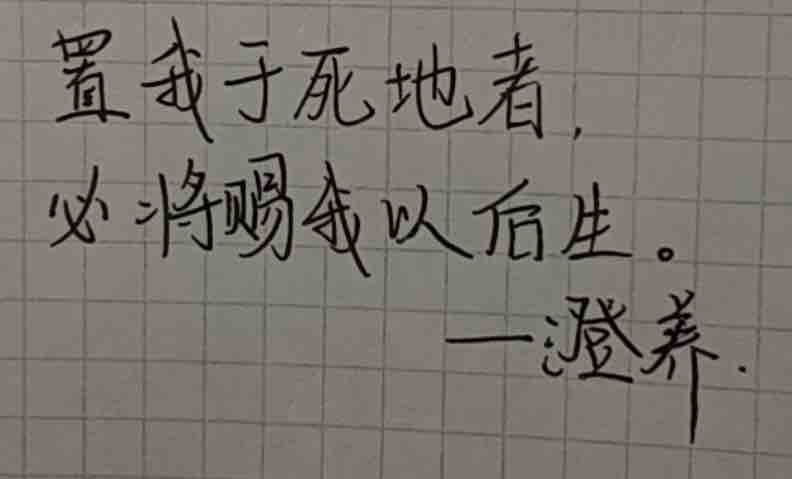 置我于死地者，
必将赐我以后生。
—澄养.